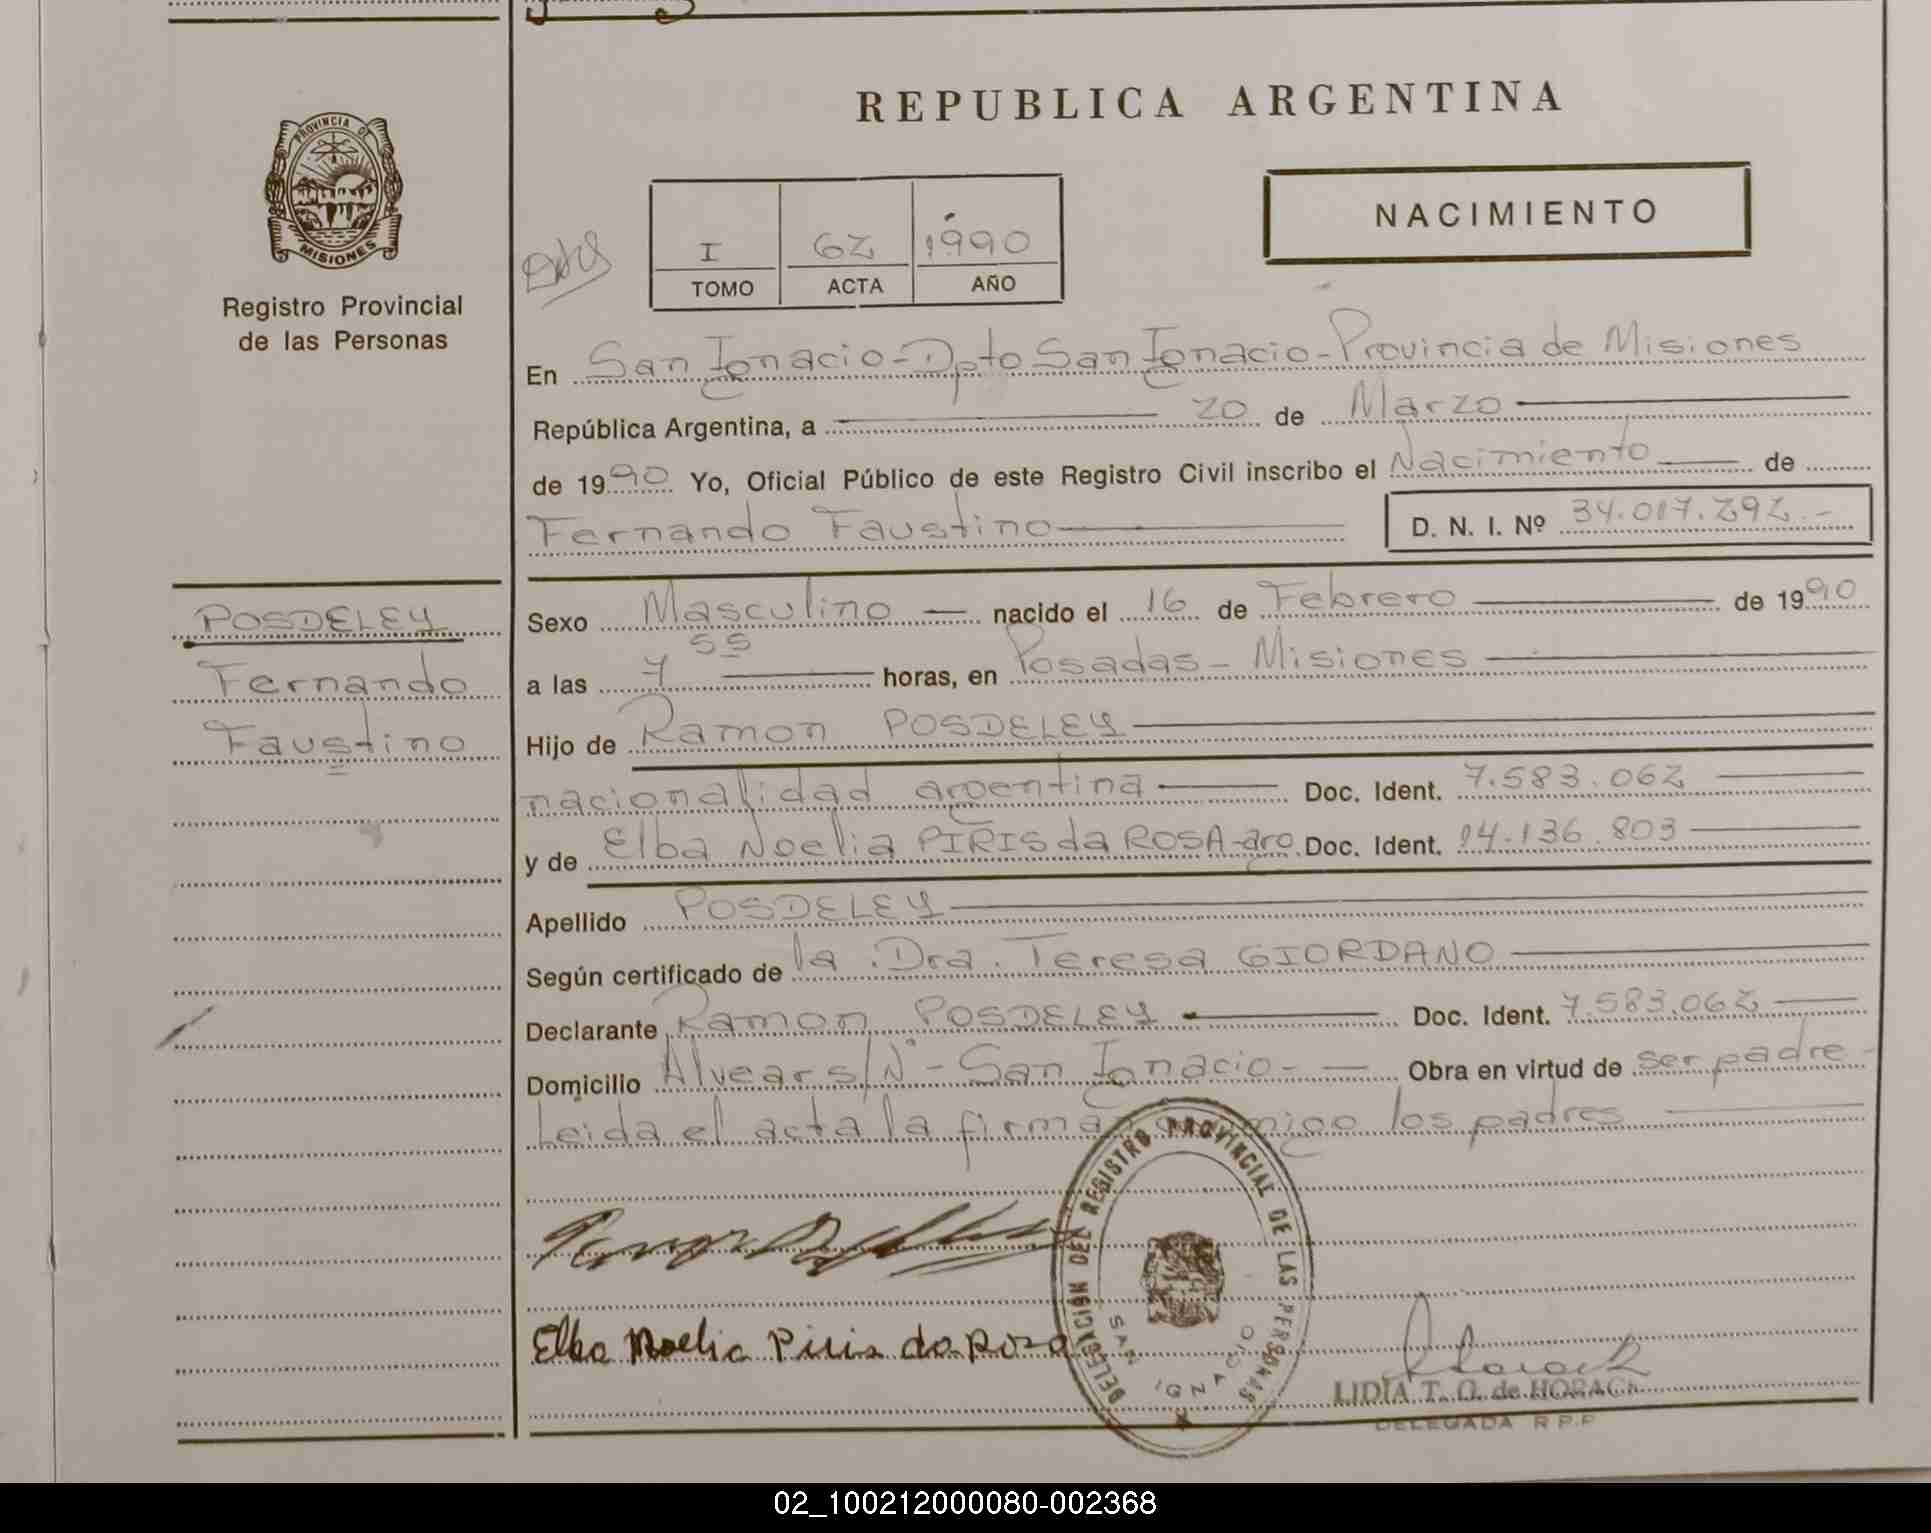 REPUBLICA ARGENTINA
PROVINCIA DE
MISIONES
Registro Provincial
de las Personas
NACIMIENTO
I 62 1990
TOMO ACTA AÑO
En San Ignacio-Dpto San Ignacio-Provincia de Misiones
República Argentina, a 20 de Marzo
de 1990 Yo, Oficial Público de este Registro Civil inscribo el Nacimiento de
Fernando Faustino D. N. I. Nº 34.017.292.-
POSDELEY
Fernando
Faustino
Sexo Masculino nacido el 16 de Febrero de 1990
a las 7 55 horas, en Posadas - Misiones
Hijo de Ramon POSDELEY
nacionalidad argentina Doc. Ident. 7.583.062
y de Elba Noelia PIRIS da ROSA-arg. Doc. Ident. 14.136.803
Apellido POSDELEY
Según certificado de la Dra. Teresa GIORDANO
Declarante Ramon POSDELEY Doc. Ident. 7.583.062
Domicilio Alvear s/Nº - San Ignacio- Obra en virtud de ser padre-
Leida el acta la firman conmigo los padres
Elba Noelia Piris da Rosa
DELEGACIÓN DEL REGISTRO PROVINCIAL DE LAS PERSONAS
SAN IGNACIO
LIDIA T. O. de HORACK
DELEGADA R.P.P
02_100212000080-002368